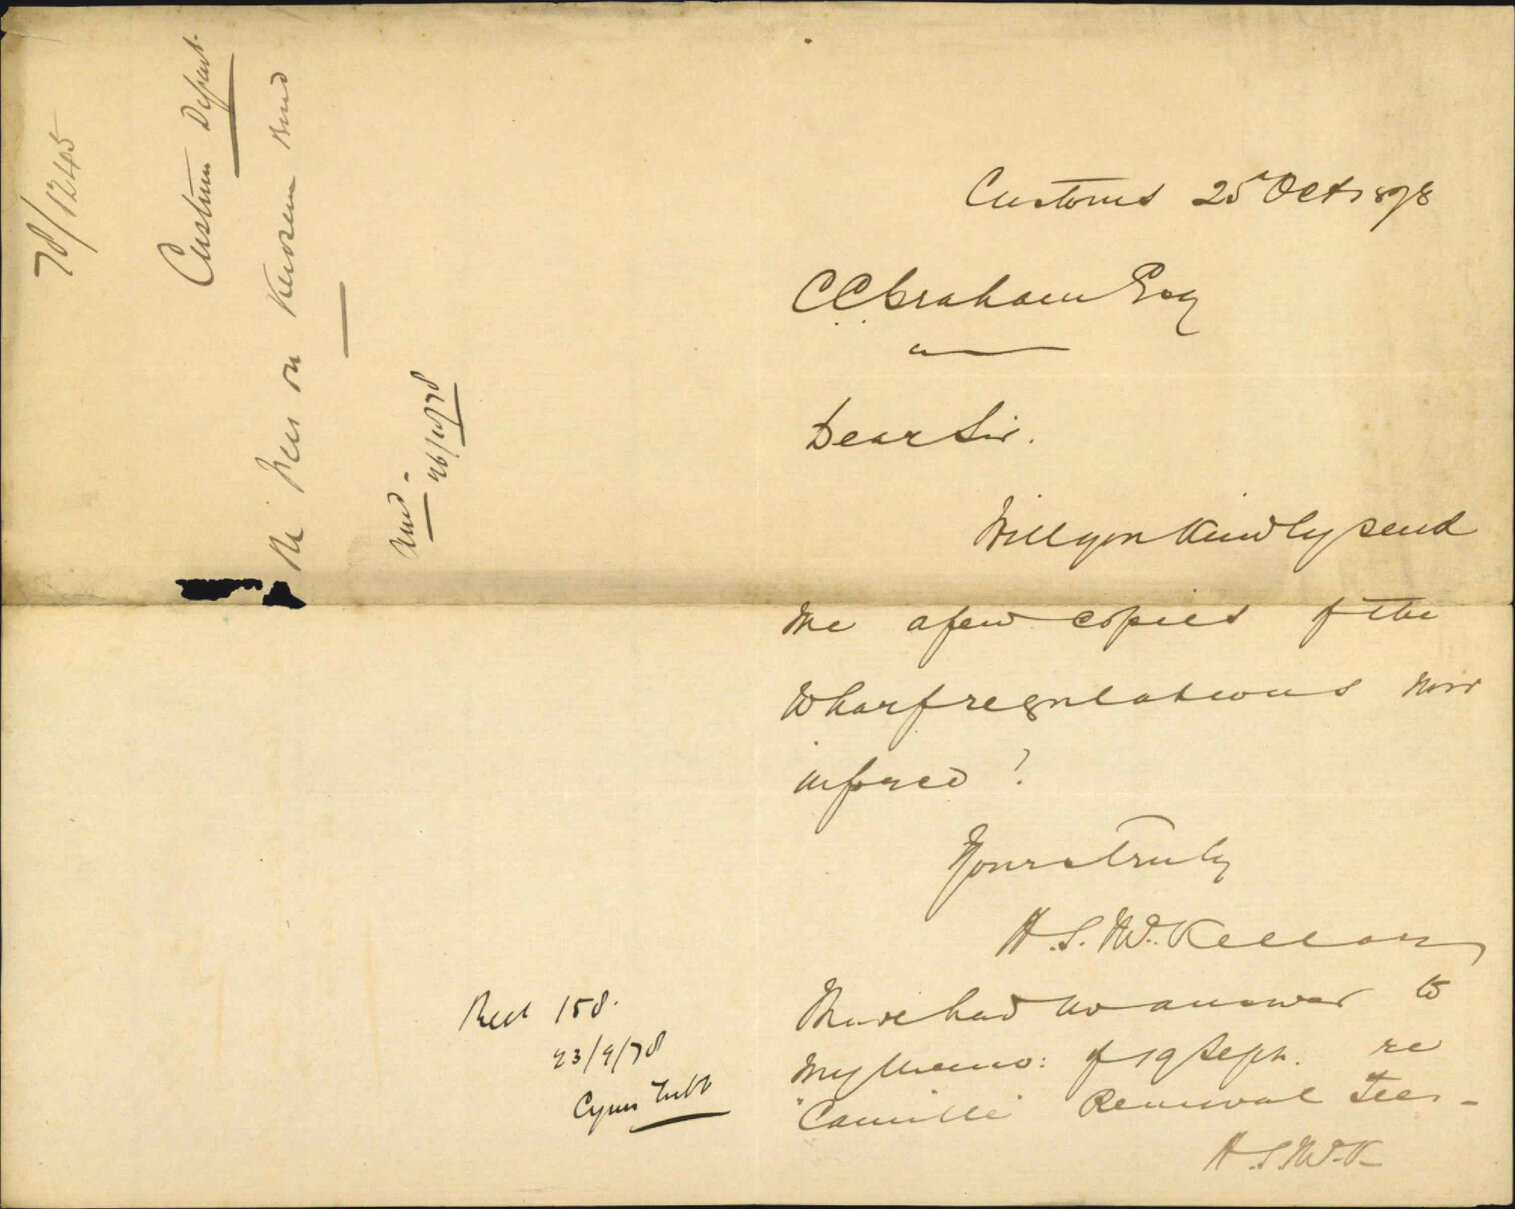 78/12405
Customs Depart.
Re Fees on Kerosene
26/10/78
Customs 25 Oct 1878
C C Graham Esq
Dear Sir.
Will you kindly send
me a few copies of the
Wharf regulations now
in force?
Yours truly
H. S. McKellar
I have had no answer to
my memo: of 19 Sept. re
"Camille" Removal Fees -
H.S.McK
158.
23/9/78